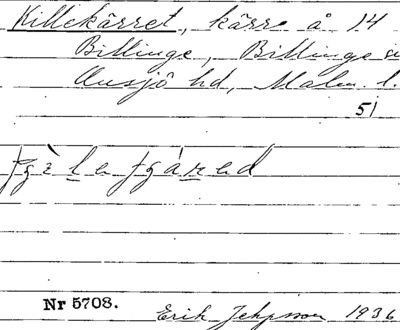 Killekärret, kärr å 14
Billinge, Billinge
Onsjö hd, Malm. l.
51
Nr 5708.
Erik Jeppsson 1936